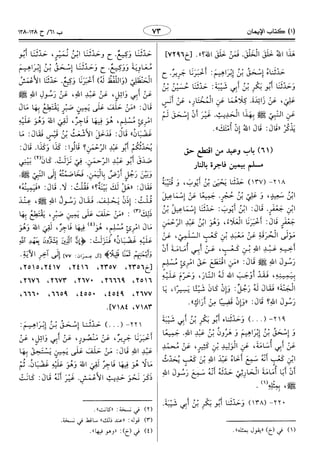 (١) كتاب الإيمان
٧٣
ب ٦١/ ح ١٣٨-١٣٨
هَذَا اللهُ خَلَقَ الْخَلْقَ، فَمَنْ خَلَقَ اللهَ؟». [خ٧٢٩٦]
حَدَّثَنَاه إِسْحَقُ بْنُ إِبْرَاهِيمَ: أَخْبَرَنَا جَرِيرٌ. ح
وَحَدَّثَنَا أَبُو بَكْرِ بْنُ أَبِي شَيْبَةَ: حَدَّثَنَا حُسَيْنُ بْنُ
عَلِيٍّ، عَنْ زَائِدَةَ. كِلاَهُمَا عَنِ الْمُخْتَارِ، عَنْ أَنَسٍ
عَنِ النَّبِيِّ ﷺ بِهَذَا الْحَدِيثِ. غَيْرَ أَنَّ إِسْحَقَ لَمْ
يَذْكُرْ «قَالَ: قَالَ اللهُ إِنَّ أُمَّتَكَ».
(٦١) باب وعيد من اقتطع حق
مسلم بيمين فاجرة بالنار
٢١٨- (١٣٧) حَدَّثَنَا يَحْيَى بْنُ أَيُّوبَ، وَ قُتَيْبَةُ
بْنُ سَعِيدٍ، وَ عَلِيُّ بْنُ حُجْرٍ. جَمِيعًا عَنْ إِسْمَاعِيلَ
بْنِ جَعْفَرٍ. قَالَ: ابْنُ أَيُّوبَ: حَدَّثَنَا إِسْمَاعِيلُ بْنُ
جَعْفَرٍ. قَالَ: أَخْبَرَنَا الْعَلاَءُ، وَهُوَ ابْنُ عَبْدِ الرَّحْمَنِ
مَوْلَى الْحُرَقَةِ عَنْ مَعْبَدِ بْنِ كَعْبٍ السَّلَمِيِّ، عَنْ
أَخِيهِ عَبْدِ اللهِ بْنِ كَعْبٍ، عَنْ أَبِي أُمَامَةَ أَنَّ
رَسُولَ اللهِ ﷺ قَالَ: «مَنِ اقْتَطَعَ حَقَّ امْرِئٍ مُسْلِمٍ
بِيَمِينِهِ، فَقَدْ أَوْجَبَ اللهُ لَهُ النَّارَ، وَحَرَّمَ عَلَيْهِ
الْجَنَّةَ» فَقَالَ لَهُ رَجُلٌ: وَإِنْ كَانَ شَيْئًا يَسِيرًا، يَا
رَسُولَ اللهِ؟ قَالَ: «وَإِنْ قَضِيبًا مِنْ أَرَاكٍ».
٢١٩- (...) وَحَدَّثَنَاه أَبُو بَكْرِ بْنُ أَبِي شَيْبَةَ
وَ إِسْحَقُ بْنُ إِبْرَاهِيمَ وَ هَرُونُ بْنُ عَبْدِ اللهِ. جَمِيعًا
عَنْ أَبِي أُسَامَةَ، عَنِ الْوَلِيدِ بْنِ كَثِيرٍ، عَنْ مُحَمَّدِ
ابْنِ كَعْبٍ أَنَّهُ سَمِعَ أَخَاهُ عَبْدَ اللهِ بْنَ كَعْبٍ يُحَدِّثُ
أَنَّ أَبَا أُمَامَةَ الْحَارِثِيَّ حَدَّثَهُ أَنَّهُ سَمِعَ رَسُولَ اللهِ
ﷺ، بِمِثْلِهِ(١).
٢٢٠- (١٣٨) وَحَدَّثَنَا أَبُو بَكْرِ بْنُ أَبِي شَيْبَةَ.
(١) في (خ) «يقول بمثله».
حَدَّثَنَا وَكِيعٌ. ح وَحَدَّثَنَا ابْنُ نُمَيْرٍ. حَدَّثَنَا أَبُو
مُعَاوِيَةَ وَوَكِيعٌ. ح وَحَدَّثَنَا إِسْحَقُ بْنُ إِبْرَاهِيمَ
الْحَنْظَلِيُّ (وَاللَّفْظُ لَهُ) أَخْبَرَنَا وَكِيعٌ. حَدَّثَنَا الأَعْمَشُ
عَنْ أَبِي وَائِلٍ، عَنْ عَبْدِ اللهِ، عَنْ رَسُولِ اللهِ ﷺ
قَالَ: «مَنْ حَلَفَ عَلَى يَمِينِ صَبْرٍ يَقْتَطِعُ بِهَا مَالَ
امْرِئٍ مُسْلِمٍ، هُوَ فِيهَا فَاجِرٌ، لَقِيَ اللهَ وَهُوَ عَلَيْهِ
غَضْبَانُ» قَالَ: فَدَخَلَ الأَشْعَثُ بْنُ قَيْسٍ فَقَالَ: مَا
يُحَدِّثُكُمْ أَبُو عَبْدِ الرَّحْمَنِ؟ قَالُوا: كَذَا وَكَذَا. قَالَ:
صَدَقَ أَبُو عَبْدِ الرَّحْمَنِ. فِيَّ نَزَلَتْ. كَانَ(٢) بَيْنِي
وَبَيْنَ رَجُلٍ أَرْضٌ بِالْيَمَنِ. فَخَاصَمْتُهُ إِلَى النَّبِيِّ ﷺ.
فَقَالَ: «هَلْ لَكَ بَيِّنَةٌ؟» فَقُلْتُ: لاَ. قَالَ: «فَيَمِينُهُ»
قُلْتُ: إِذَنْ يَحْلِفُ. فَقَالَ رَسُولُ اللهِ ﷺ، عِنْدَ
ذَلِكَ(٣): «مَنْ حَلَفَ عَلَى يَمِينِ صَبْرٍ، يَقْتَطِعُ بِهَا
مَالَ امْرِئٍ مُسْلِمٍ، هُوَ(٤) فِيهَا فَاجِرٌ، لَقِيَ اللهَ وَهُوَ
عَلَيْهِ غَضْبَانُ» فَنَزَلَتْ: ﴿إِنَّ الَّذِينَ يَشْتَرُونَ بِعَهْدِ اللهِ
وَأَيْمَانِهِمْ ثَمَنًا قَلِيلًا﴾ [آل عمران: ٧٧] إِلَى آخِرِ الآيَةِ.
[خ٢٣٥٦، ٢٣٥٧، ٢٤١٦، ٢٤١٧، ٢٥١٥،
٢٥١٦، ٢٦٦٦٩، ٢٦٧٠، ٢٦٧٣، ٢٦٧٦،
٢٦٧٧، ٤٥٤٩، ٤٥٥٠، ٦٦٥٩، ٦٦٦٠،
٧١٨٣، ٧١٨٤].
٢٢١- (...) حَدَّثَنَا إِسْحَقُ بْنُ إِبْرَاهِيمَ:
أَخْبَرَنَا جَرِيرٌ، عَنْ مَنْصُورٍ، عَنْ أَبِي وَائِلٍ، عَنْ
عَبْدِ اللهِ قَالَ: مَنْ حَلَفَ عَلَى يَمِينٍ يَسْتَحِقُّ بِهَا
مَالًا هُوَ فِيهَا فَاجِرٌ لَقِيَ اللهَ وَهُوَ عَلَيْهِ غَضْبَانُ. ثُمَّ
ذَكَرَ نَحْوَ حَدِيثِ الأَعْمَشِ. غَيْرَ أَنَّهُ قَالَ: كَانَتْ
(٢) في نسخة: «كانت».
(٣) قوله: «عند ذلك» ساقط في نسخة.
(٤) في (خ): «وهو فيها».